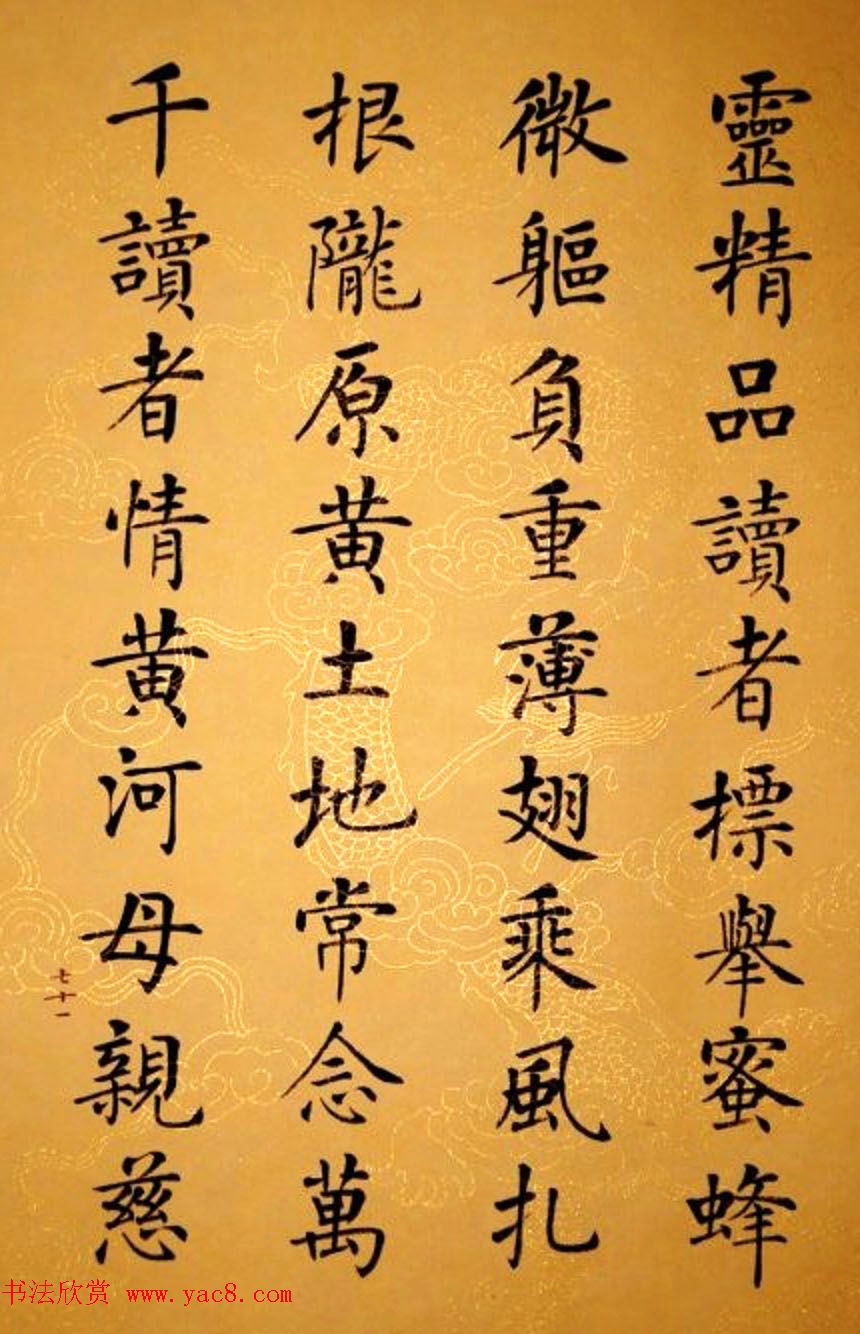 靈精品讀者標舉蜜蜂
微軀負重薄翅乘風扎
根隴原黄土地常念萬
千讀者情黄河母親慈
七十一
书法欣赏 www.yac8.com